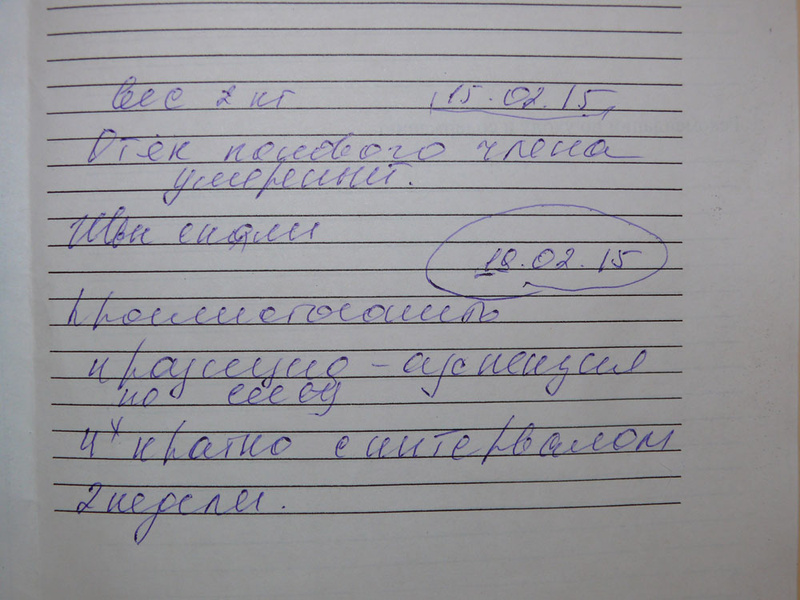 Вес 2 кг 15.02.15
Отёк полового члена
умеренный.
Швы сняли
.02.15
празицид - суспензия
по
4х кратно с интервалом
2 недели.